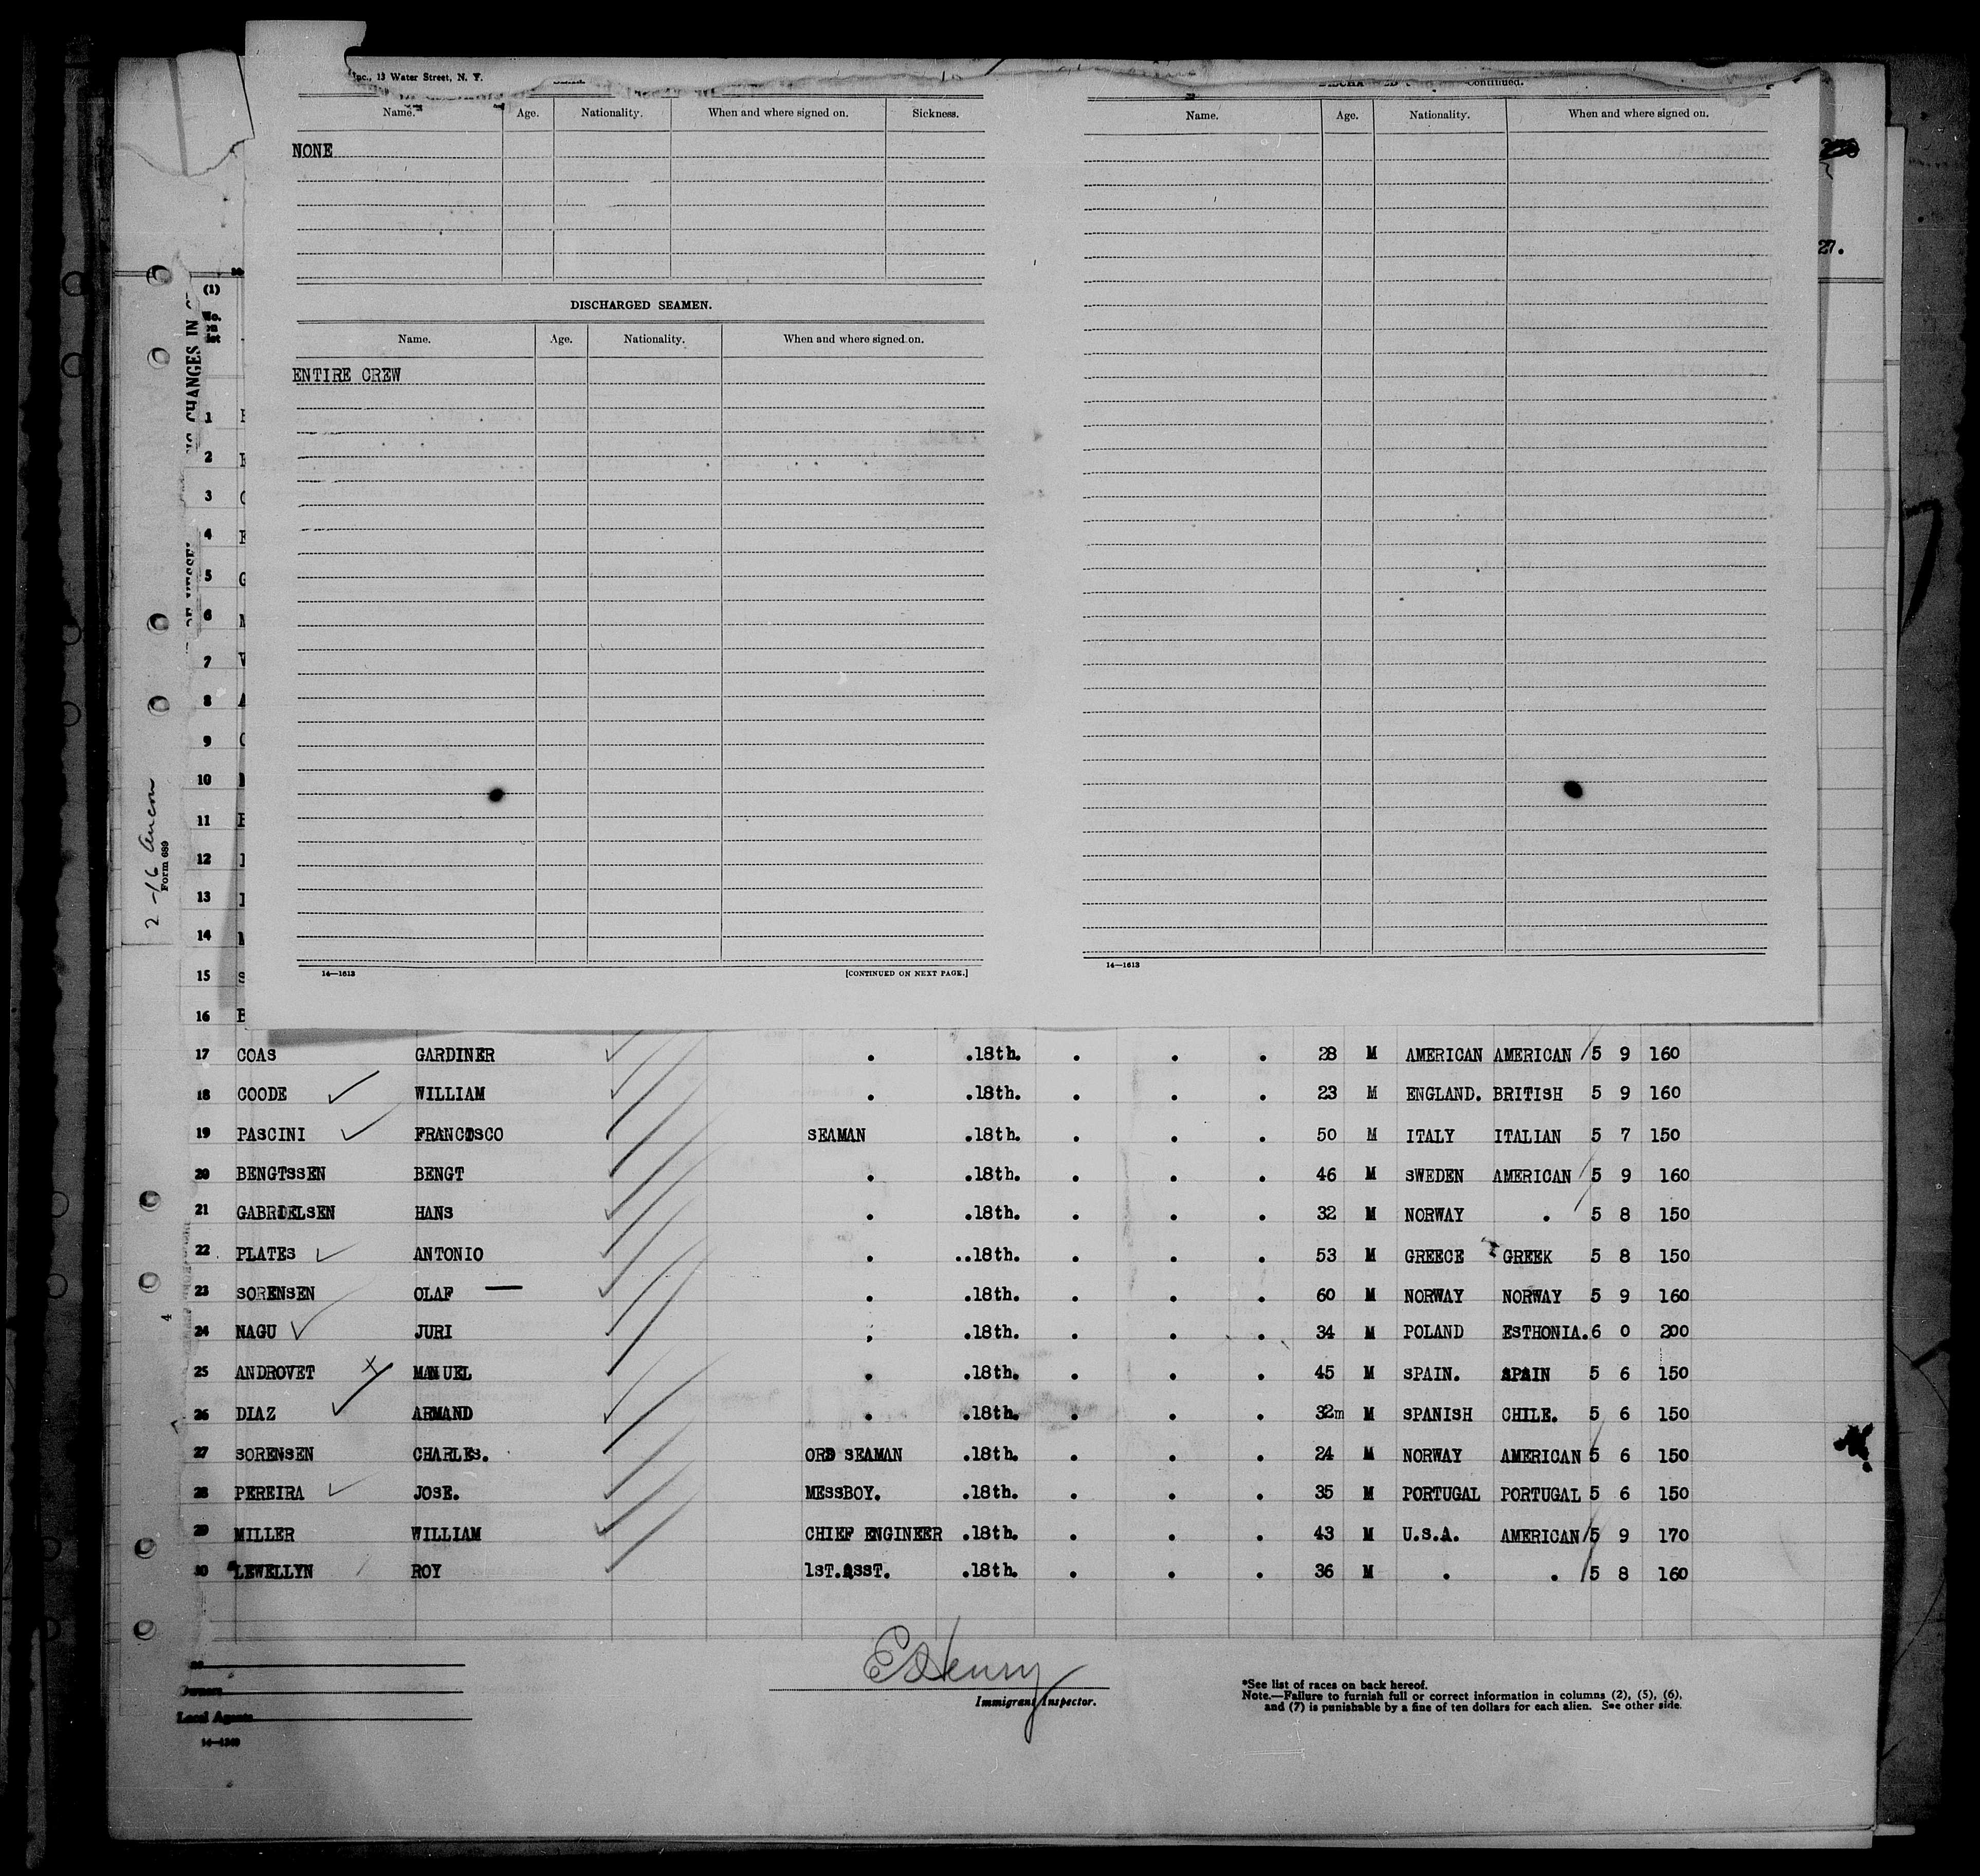 Inc., 13 Water Street, N. Y.
Name. Age. Nationality. When and where signed on. Sickness.
NONE
DISCHARGED SEAMEN.
Name. Age. Nationality. When and where signed on.
ENTIRE CREW
14—1613 [CONTINUED ON NEXT PAGE.]
Continued.
Name. Age. Nationality. When and where signed on.
14—1613
27.
(1)
CHANGES IN
2-16 Ancon
Form 689
4
1
2
3
4
5
6
7
8
9
10
11
12
13
14
15
16
17 COAS GARDINER . .18th. . . . 28 M AMERICAN AMERICAN 5 9 160
18 COODE WILLIAM . .18th. . . . 23 M ENGLAND. BRITISH 5 9 160
19 PASCINI FRANCISCO SEAMAN .18th. . . . 50 M ITALY ITALIAN 5 7 150
20 BENGTSSEN BENGT . .18th. . . . 46 M SWEDEN AMERICAN 5 9 160
21 GABRIELSEN HANS . .18th. . . . 32 M NORWAY . 5 8 150
22 PLATES ANTONIO . ..18th. . . . 53 M GREECE GREEK 5 8 150
23 SORENSEN OLAF . .18th. . . . 60 M NORWAY NORWAY 5 9 160
24 NAGU JURI ; .18th. . . . 34 M POLAND ESTHONIA. 6 0 200
25 ANDROVET MANUEL . .18th. . . . 45 M SPAIN. SPAIN 5 6 150
26 DIAZ ARMAND . .18th. . . . 32m M SPANISH CHILE. 5 6 150
27 SORENSEN CHARLES. ORD SEAMAN .18th. . . . 24 M NORWAY AMERICAN 5 6 150
28 PEREIRA JOSE. MESSBOY. .18th. . . . 35 M PORTUGAL PORTUGAL 5 6 150
29 MILLER WILLIAM CHIEF ENGINEER .18th. . . . 43 M U.S.A. AMERICAN 5 9 170
30 LEWELLYN ROY 1ST.ASST. .18th. . . . 36 M . . 5 8 160
Owners
Local Agents
14—1240
E Henry
Immigrant Inspector.
*See list of races on back hereof.
Note.—Failure to furnish full or correct information in columns (2), (5), (6),
and (7) is punishable by a fine of ten dollars for each alien. See other side.